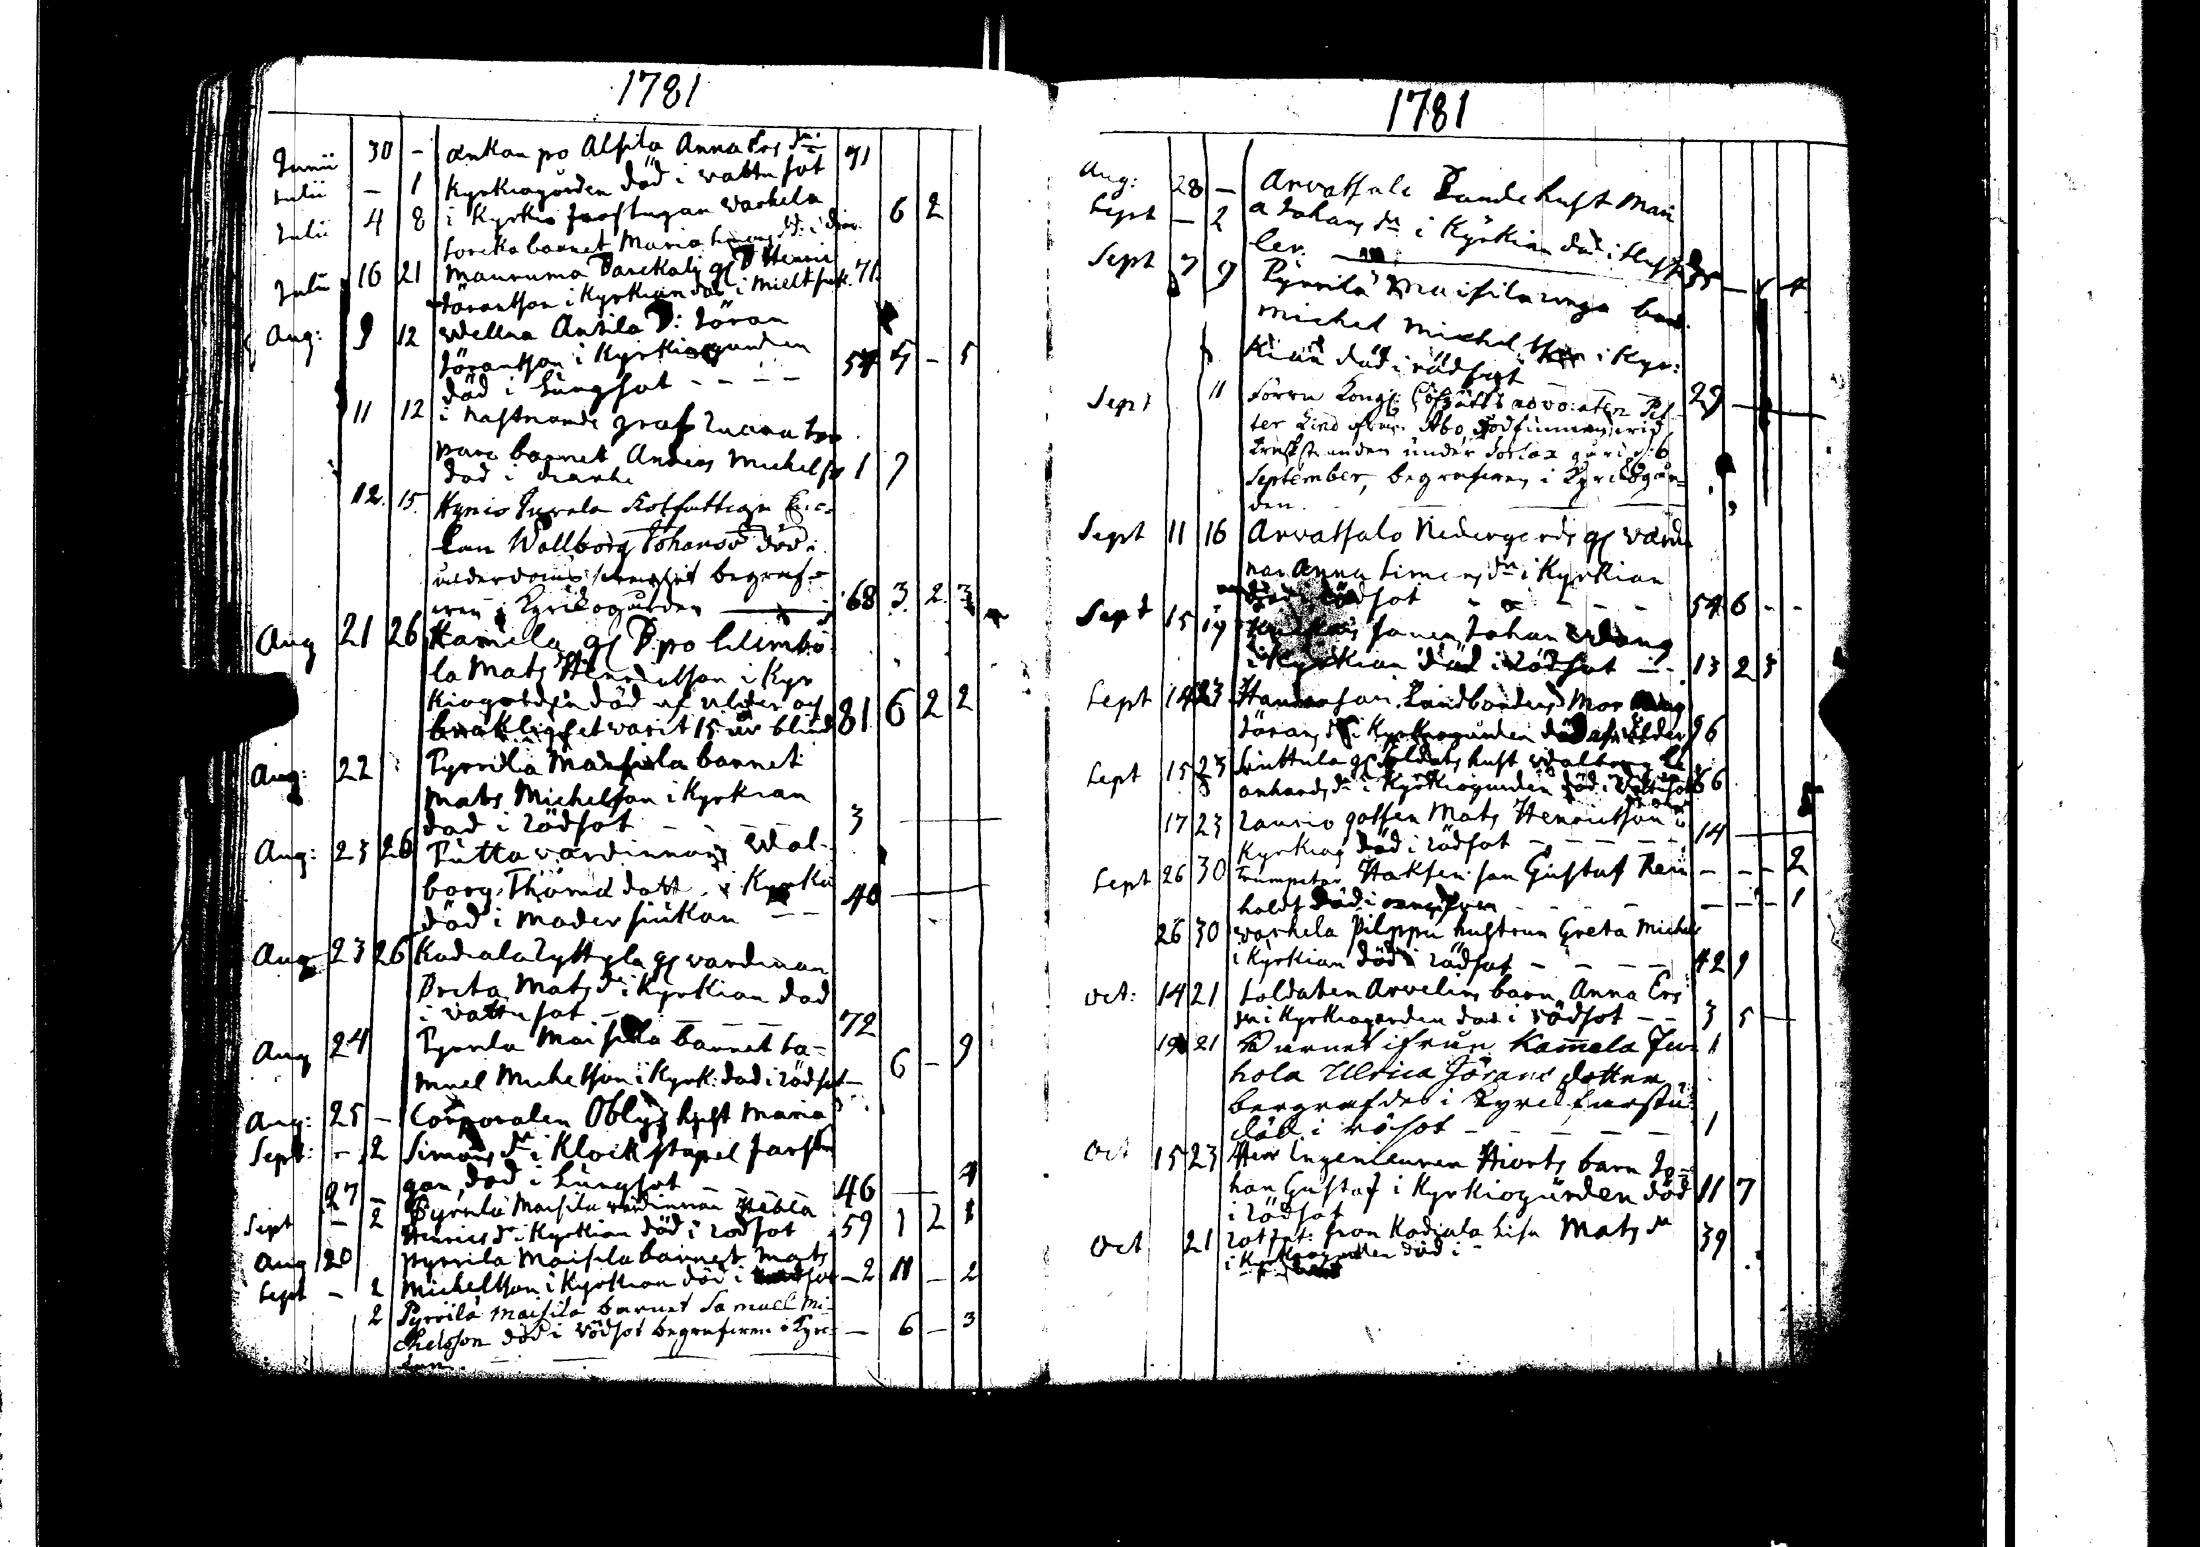 1781
Junii 30 - ænkan po Alsila Anna Ers dr 71
Julii - 1 Kyrkiogården död i vattusot
Julii 4 8 i Kyrkio farstugan varhela 6 2
barnet Maria
Julii 16 21 Mauruma gl B Henric
Jörantson i Kyrkian död i 71
Aug: 9 12 Wellua Ansila B: Jöran
Jörantson i Kyrkiogården 54 5 - 5
död i Lungsot - - - -
11 12 i graf
barnet Anders Michelss 1 7
död i
12. 15. Hynio Rotfattign En-
kan Wallborg Johansd död i
ålderdoms begraf-
ven i Kyrkogården 68 3. 2. 3
Aug 21 26 Kamela gl B po
la Mats Hendricsson i Kyr
kiogården död af ålder og
bräklighet varit 15 år blind 81 6 2 2
Aug: 22 Pyrrila Maisila barnet
Mats Michelson i Kyrkian
död i rödsot - - - 3
Aug: 23 26 Putta vardinnan Wal-
borg Thomæ dott. i Kyrki 40
död i moder siukan - -
Aug 23 26 Kadiala Lyttyla gl vardinan
Breta Mats dr i Kyrkian död
i vattusot - - - 72
Aug 24 Pyrrila Maisila barnet Sa-
muel Michelson i Kyrk: död i rödsot - 6 - 9
Aug: 25 - Corporalen Oblys hust Maria
Sept: - 2 Simons dr i Klockstapel farstu
gan, död i Lungsot 46 - 4
27 - Pyrrila Maisila vardinnan Hebla
Sept - 2 Henrics dr i Kyrkian död i rodsot 59 1 2 1
Aug 20 Pyrrila Maisila barnet Mats
Sept - 2 Michelsson i Kyrkian död i - 2 11 - 2
2 Pyrrilä Maisila barnet Samuel Mi-
chelsson död i rödsot begrafven i Kyrc- - 6 - 3
kan.
1781
Aug: 28 - Arvassalo hust Mari
Sept - 2 a Johans dr i Kyrkian död i
ber. 35 - - 4
Sept 7 9 Pyrrila Maisila unga bond.
Michel Michelsson i Kyr:
kian död i rödsot 29
Sept 11 förra Kongl: Hofrätts advocaten Pet-
ter Lind ifrån Åbo, död funnen wid
stranden under gård d: 6
September, begrafven i Kyrckogår-
den.
Sept 11 16 Arvassalo Nedergårds gl värdi
nan Anna Simons dr i Kyrkian
död i rödsot - - - - 54 6 - -
Sept 15 19 sonen Johan Wång
i Kyrkian död i rödsot - - 13 2 3
Sept 14 23 Landbondens Mor
Jörans dr i Kyrkiogården död af ålder 96
Sept 15 23 gl Soldats hust Walborg Le
onhards dr i Kyrkiogården död i vattusot 66
17 23 Laurio gossen Mats Henricsson i
Kyrkiog död i rödsot - - - - 14
Sept 26 30 Trumpetar son Gustaf Rein - - - 2
holdt död i - - - - - - - 1
26 30 varhela Pilppu hustrun Greta Michels
i Kyrkian död i rödsot - - - - 42 9
Oct: 14 21 Soldaten Arvelins barn Anna Ers
dr i Kyrkiogården död i rödsot - - 3 5 -
19 21 Barnet ifrån Kamela Ju- 1
hola Ulrica Jörans dotter
begrafdes i Kyrck farstu:
död i rösot - - - - - 1
Oct 15 23 Herr Ingenieuren Hiorts barn Jo-
han Gustaf i Kyrkiogården död 11 7
i rödsot
Oct 21 rotfat: från Kadiala Lisa Mats dr 39
i Kyrkiogården död i